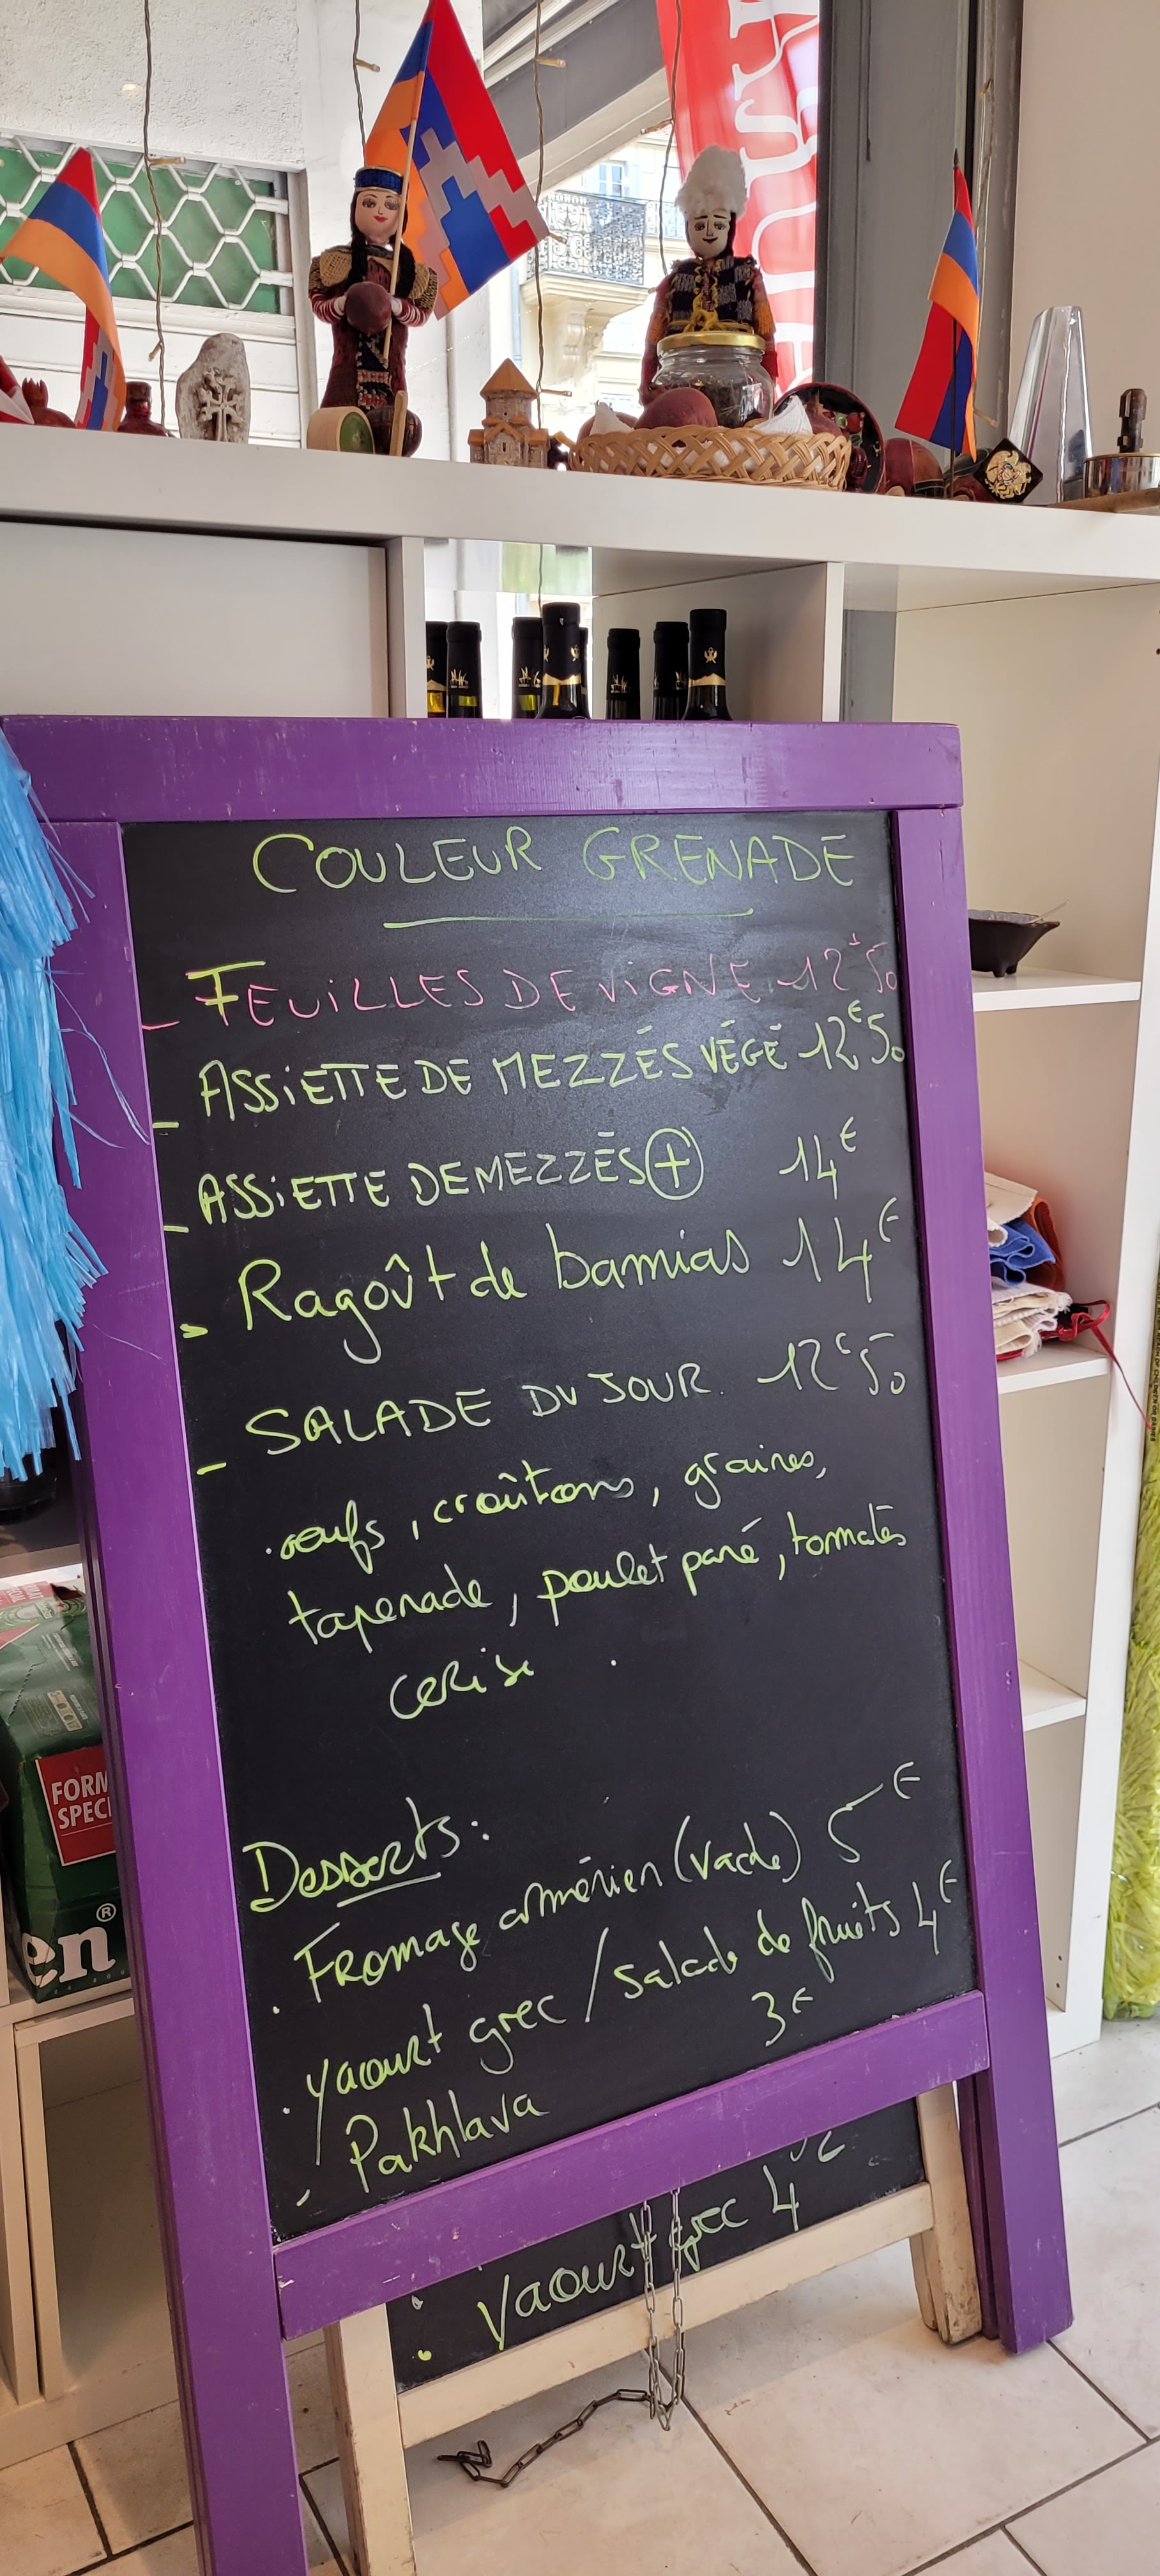 COULEUR GRENADE
- FEUILLES DE VIGNE 12€50
- ASSIETTE DE MEZZÉS VÉGÉ 12€50
- ASSIETTE DE MEZZÉS + 14€
- Ragoût de bamias 14€
- SALADE DU JOUR. 12€50
. oeufs, croûtons, graines,
tapenade, poulet pané, tomates
cerise .
Desserts:
. Fromage arménien (vache) 5€
. Yaourt grec / salade de fruits 4€
- Pakhlava 3€
. Yaourt grec 4
FORM
SPECI
en®